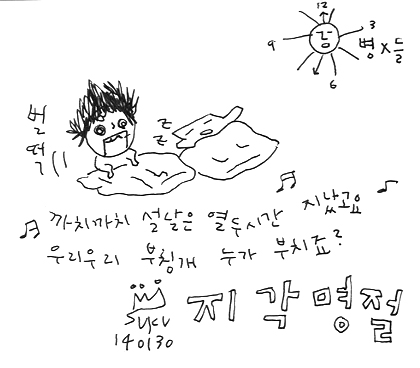 12
3
6
9
병×들
벌
떡
z
z
♬ 까치까치 설날은 열두시간 지났고요 ♬ ♪
우리우리 부침개 누가 부치죠?
sycu
140130
지각명절